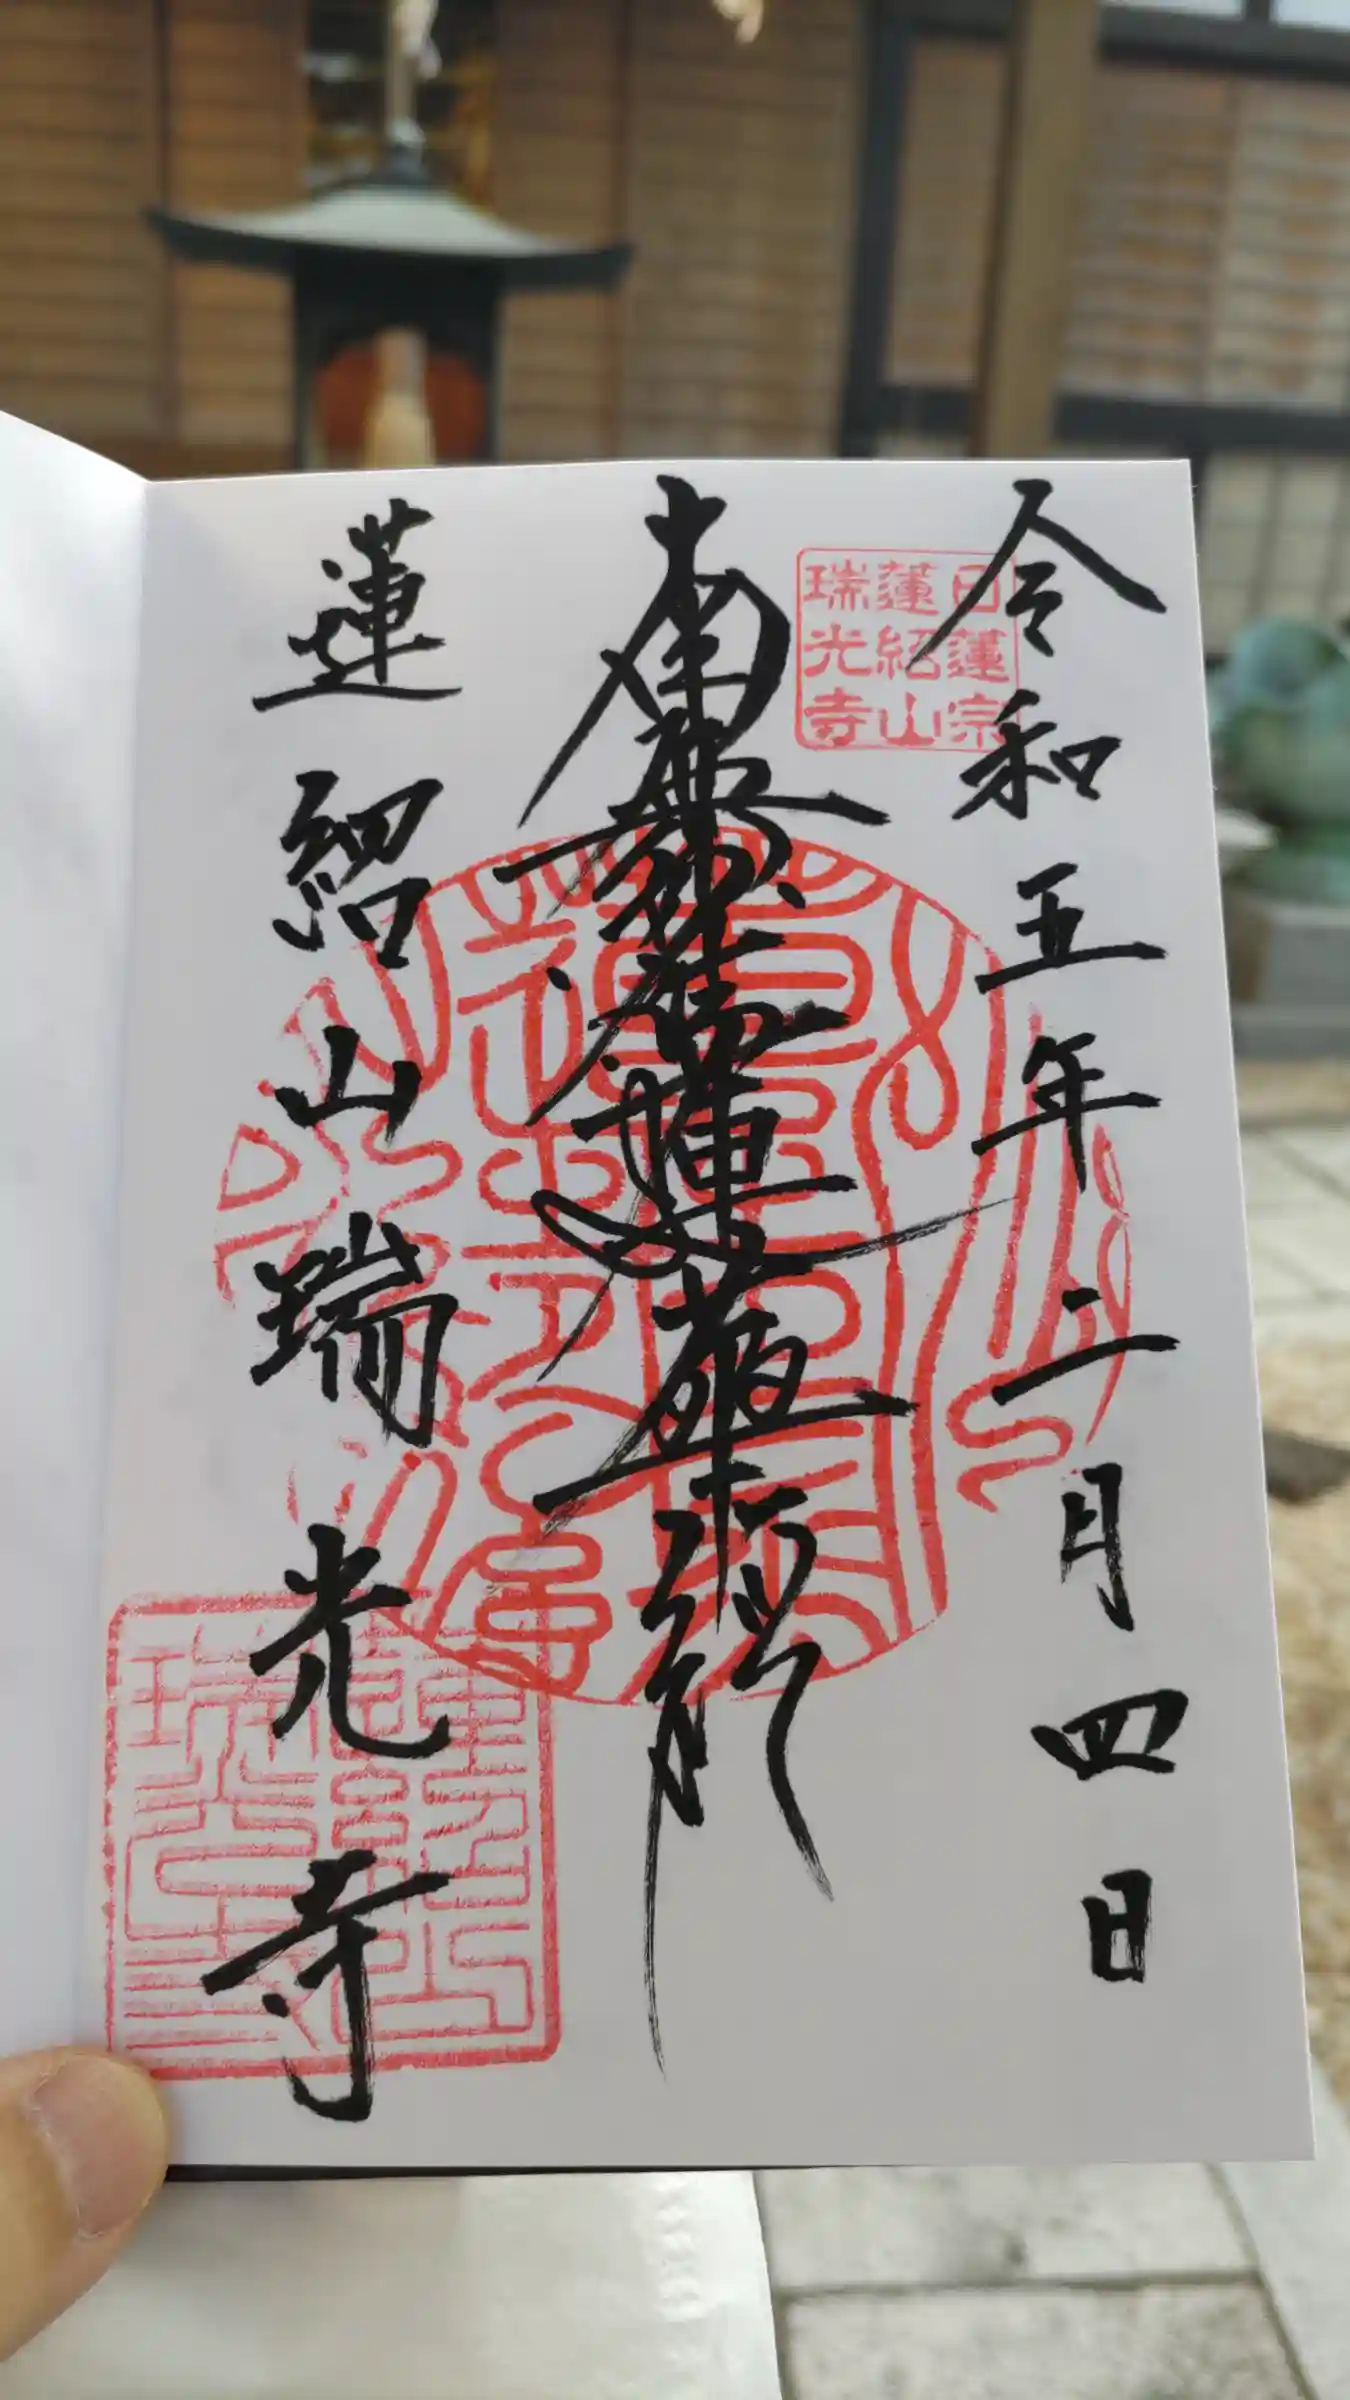 令和五年二月四日
日蓮宗
蓮紹山
瑞光寺
南無妙法蓮華経
蓮紹山瑞光寺